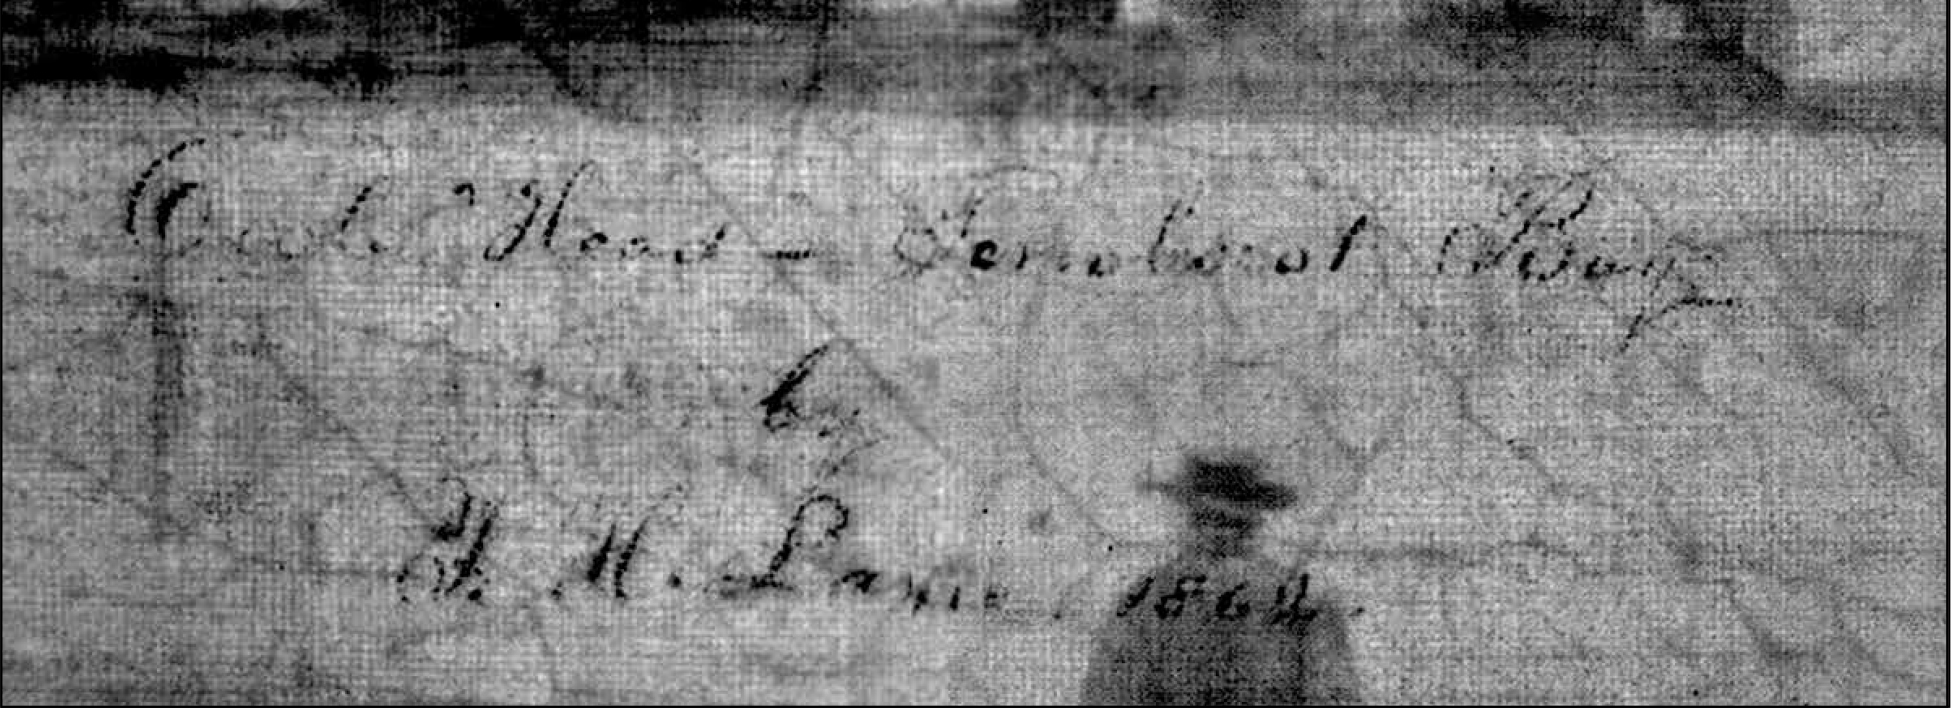 Owls Head - Penobscot Bay
by
F. H. Lane, 1862.